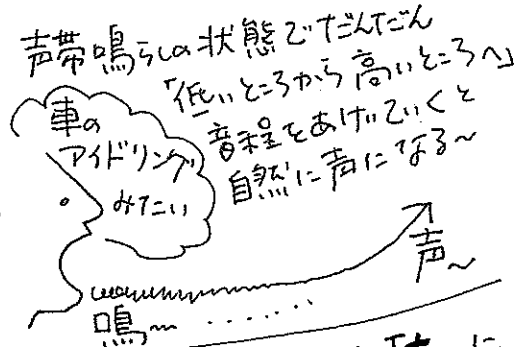 声帯鳴らしの状態でだんだん
「低いところから高いところへ」
音程をあげていくと
自然に声になる〜
車の
アイドリング
みたい
鳴〜 ・・・・・・
声〜